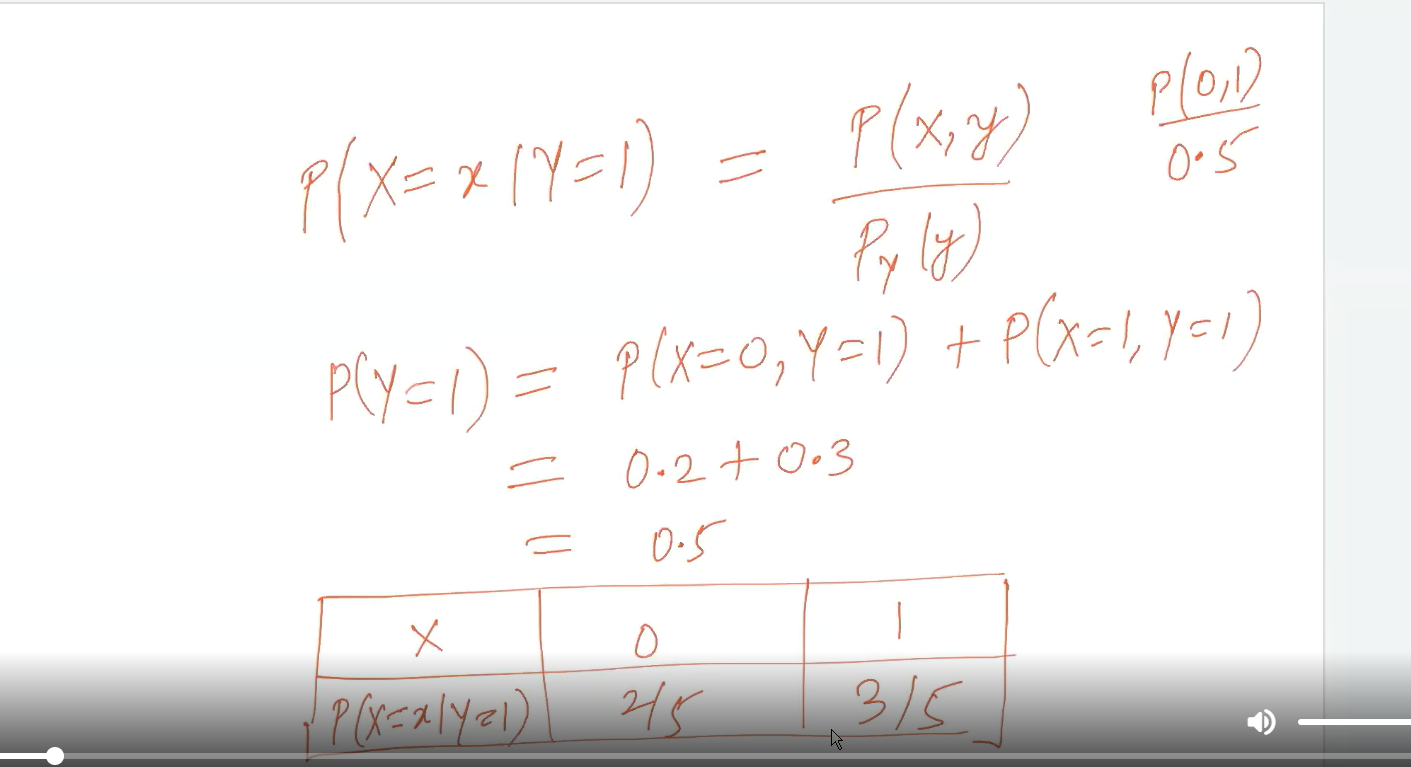 P(X=x|Y=1) = P(x,y) / P_Y(y)
P(0,1) / 0.5
P(Y=1) = P(X=0,Y=1) + P(X=1,Y=1)
= 0.2+0.3
= 0.5
X 0 1
P(X=x|Y=1) 2/5 3/5